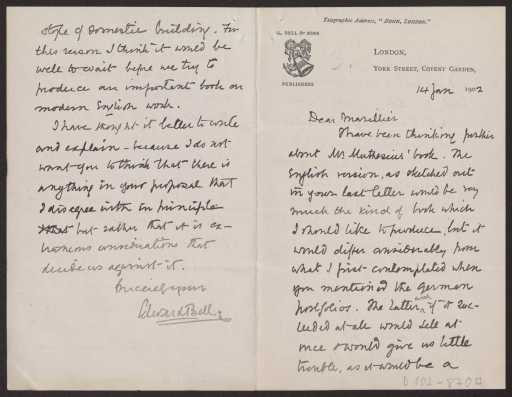 Telegraphic Address, "BOHN, LONDON."
G. BELL & SONS
PUBLISHERS
LONDON,
YORK STREET, COVENT GARDEN,
14 Jan 1902
Dear Marillier
I have been thinking further
about Mr Muthesius' book. The
English version, as sketched out
in your last letter would be very
much the kind of book which
I should like to produce, but it
would differ considerably from
what I first contemplated when
you mentioned the German
portfolios. The latter, and if it suc-
ceeded at all would sell at
once & would give us little
trouble, as it would be a
D 102-8700
style of Domestic building. For
this reason I think it would be
well to wait before we try to
produce an important book on
modern English work.
I have thought it better to write
and explain - because I do not
want you to think that there is
anything in your proposal that
I disagree with in principle
that but rather that it is ex-
traneous considerations that
decide us against it.
Sincerely yours
Edward Bell